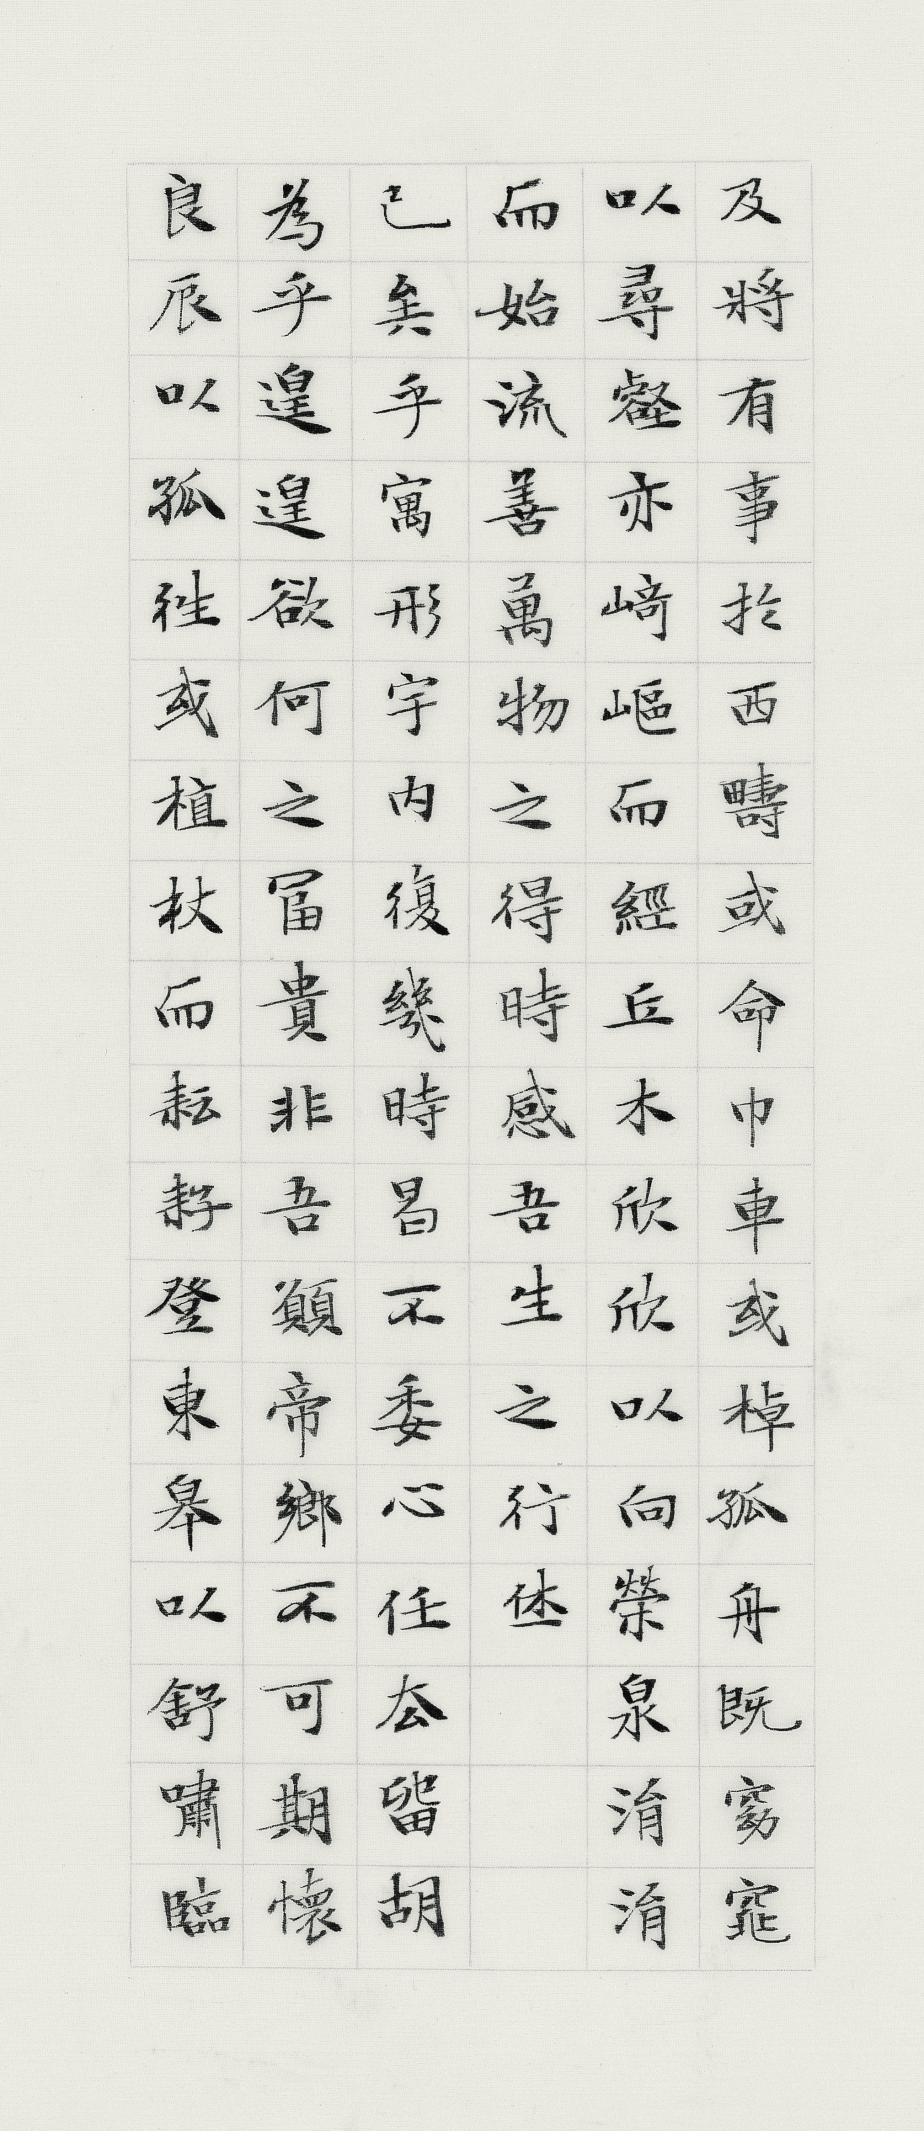 及將有事於西疇或命巾車或棹孤舟既窈窕
以尋壑亦崎嶇而經丘木欣欣以向榮泉涓涓
而始流善萬物之得時感吾生之行休
已矣乎寓形宇內復幾時曷不委心任去留胡
為乎遑遑欲何之富貴非吾願帝鄉不可期懷
良辰以孤往或植杖而耘耔登東皋以舒嘯臨